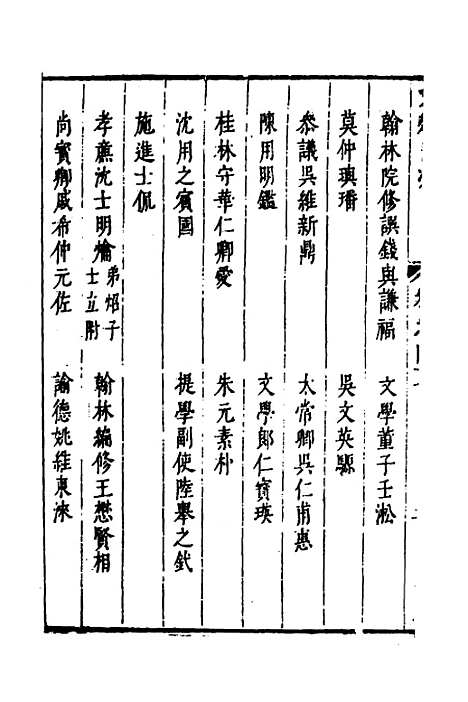 翰林院修譔錢與謙福　文學董子壬淞
莫仲璵璠　吳文英騵
叅議吳維新鼎　太常卿吳仁甫惠
陳用明鑑　文學郎仁寶瑛
桂林守華仁卿愛　朱元素朴
沈用之賓國　提學副使陸舉之釴
施進士侃
孝廉沈士明爚弟炤子士立射　翰林編修王懋賢相
尚寳卿戚希仲元佐　諭德姚維東淶